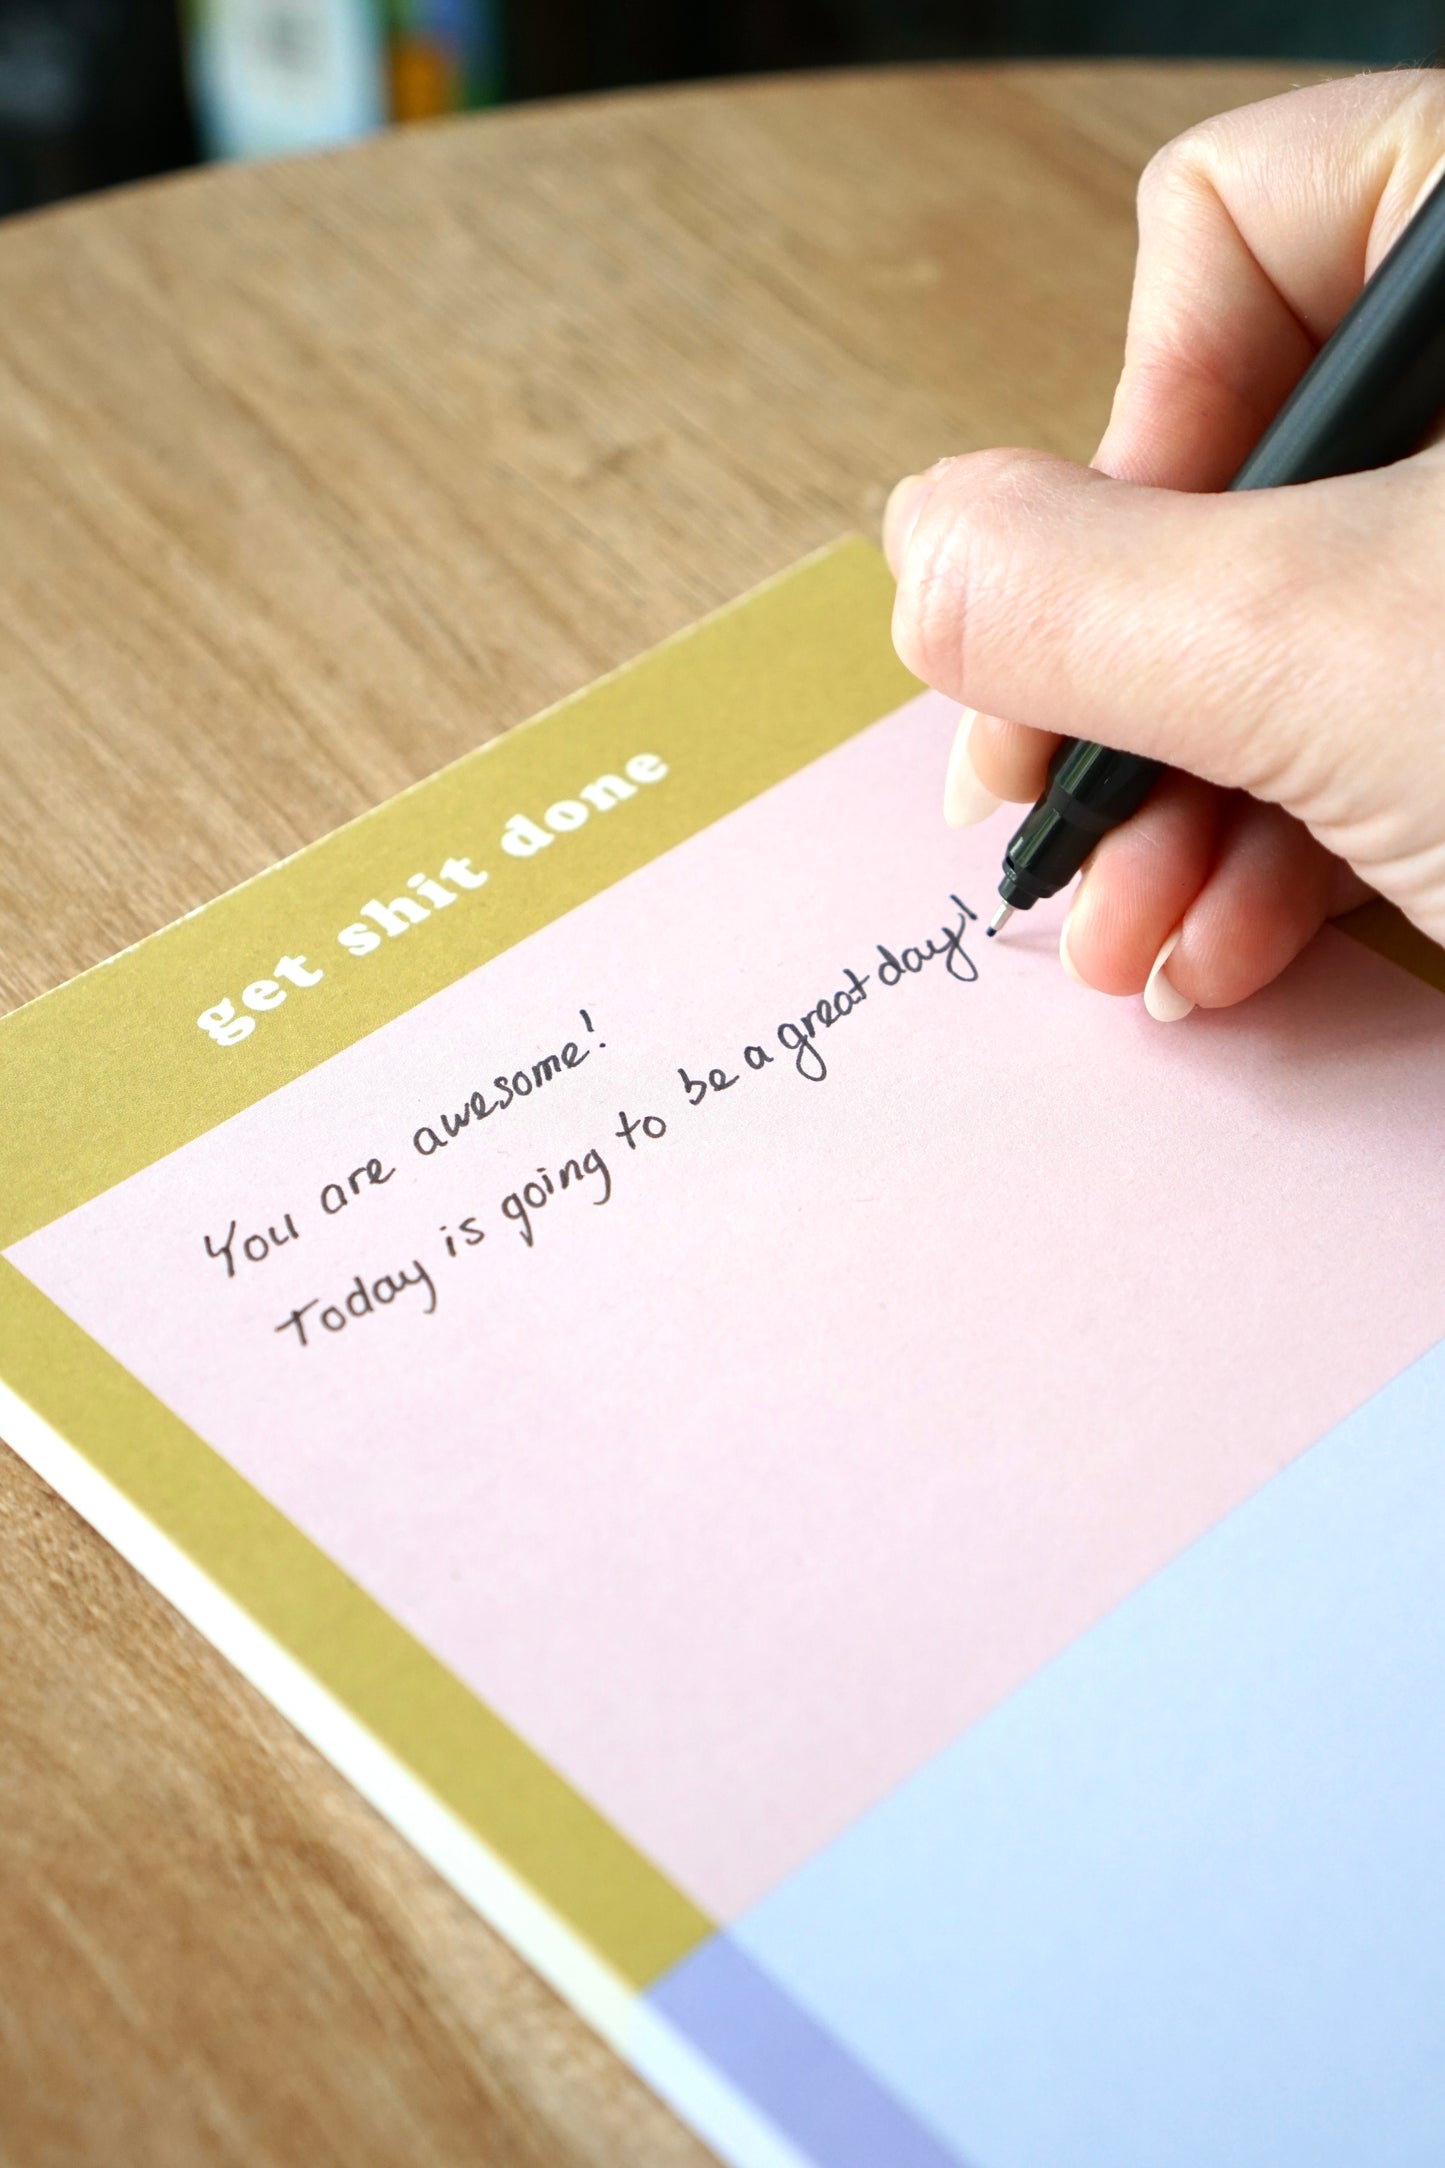 get shit done
You are awesome!
Today is going to be a great day!